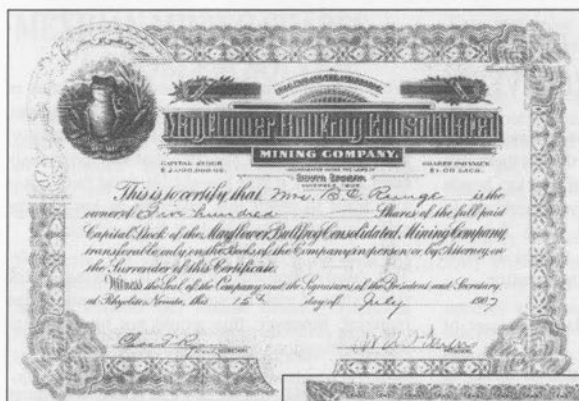 Mayflower Bullfrog Consolidated
MINING COMPANY.
CAPITAL STOCK
$2,000,000.00.
INCORPORATED UNDER THE LAWS OF
SOUTH DAKOTA
SHARES PAR VALUE
$1.00 EACH.
This is to certify that Mrs. B. C. Runge is the
owner of Five hundred Shares of the full paid
Capital Stock of the Mayflower Bullfrog Consolidated Mining Company,
transferable only on the Books of the Company in person or by Attorney, on
the Surrender of this Certificate.
Witness the Seal of the Company and the Signatures of the President and Secretary
at Rhyolite, Nevada, this 15th day of July 1907
SECRETARY.
PRESIDENT.